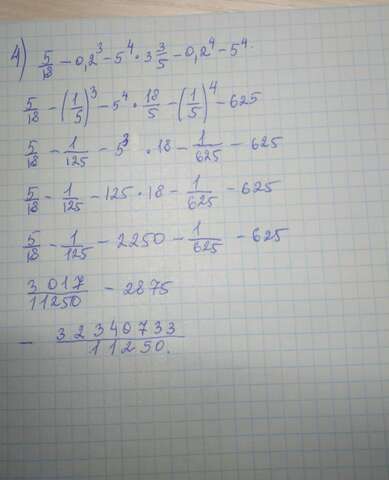 4) 5/18 - 0,2³ - 5⁴ · 3 3/5 - 0,2⁴ - 5⁴.
5/18 - (1/5)³ - 5⁴ · 18/5 - (1/5)⁴ - 625
5/18 - 1/125 - 5³ · 18 - 1/625 - 625
5/18 - 1/125 - 125 · 18 - 1/625 - 625
5/18 - 1/125 - 2250 - 1/625 - 625
3017/11250 - 2875
- 32340733/11250.